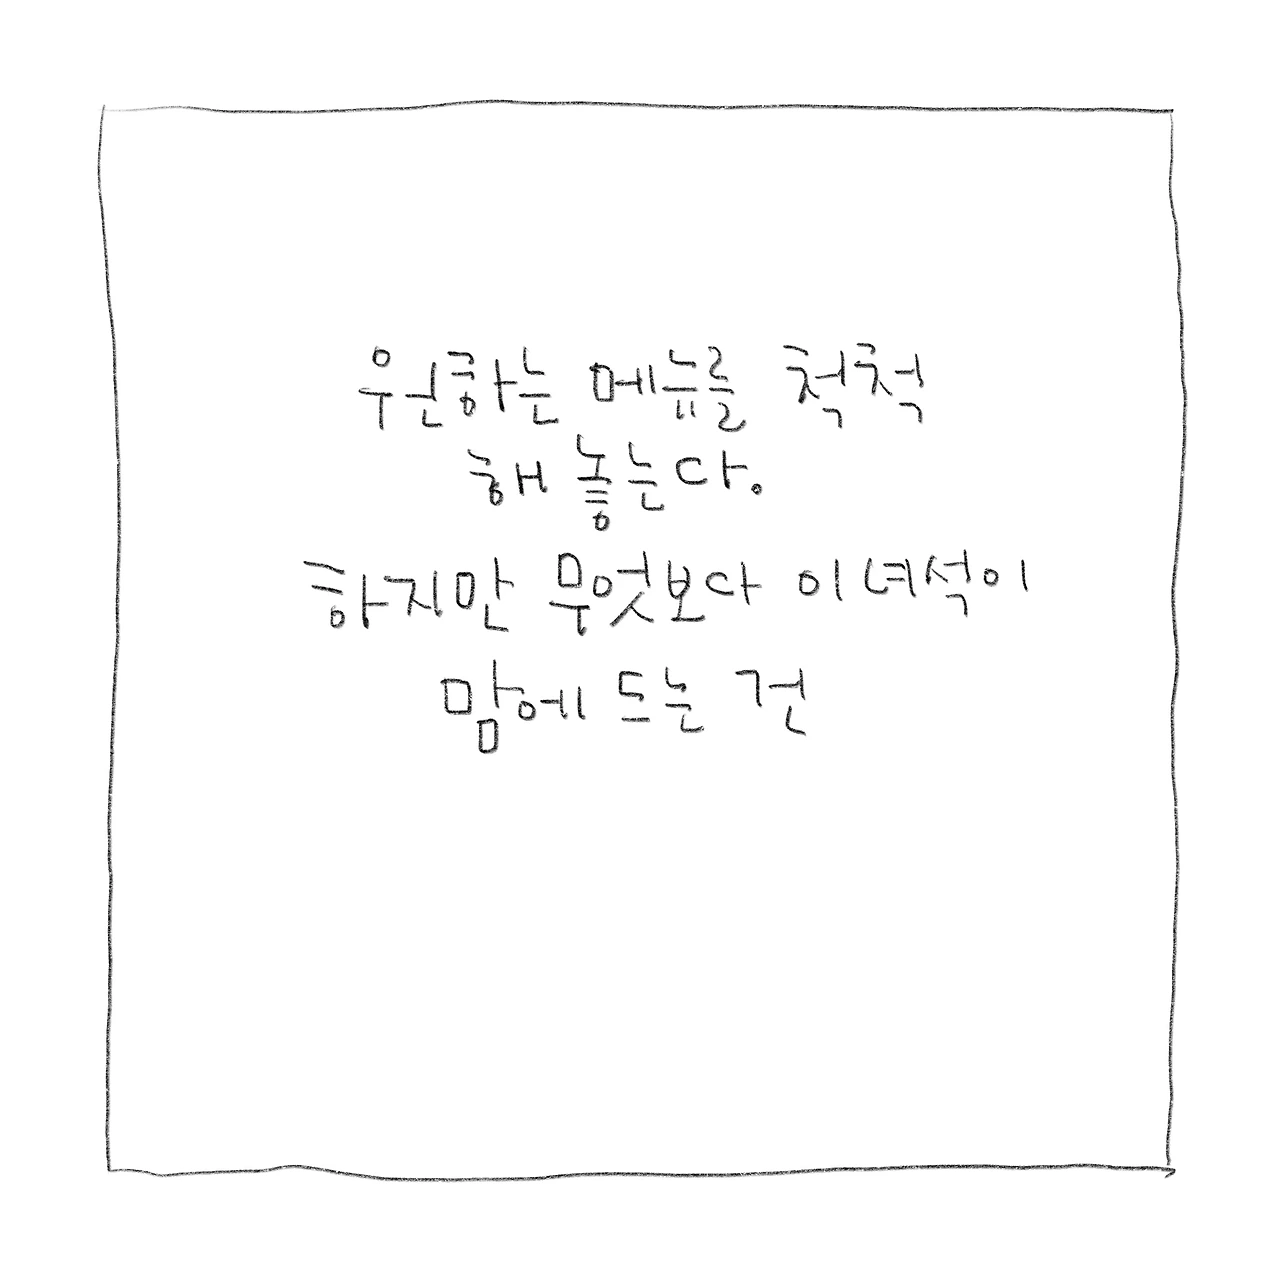 원하는 메뉴를 척척
해 놓는다.
하지만 무엇보다 이 녀석이
맘에 드는 건